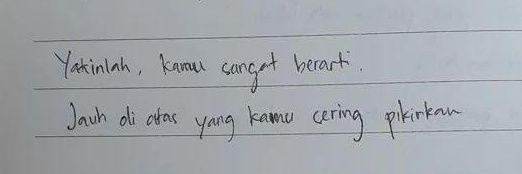 Yakinlah, kamu sangat berarti.
Jauh di atas yang kamu cering pikirkan